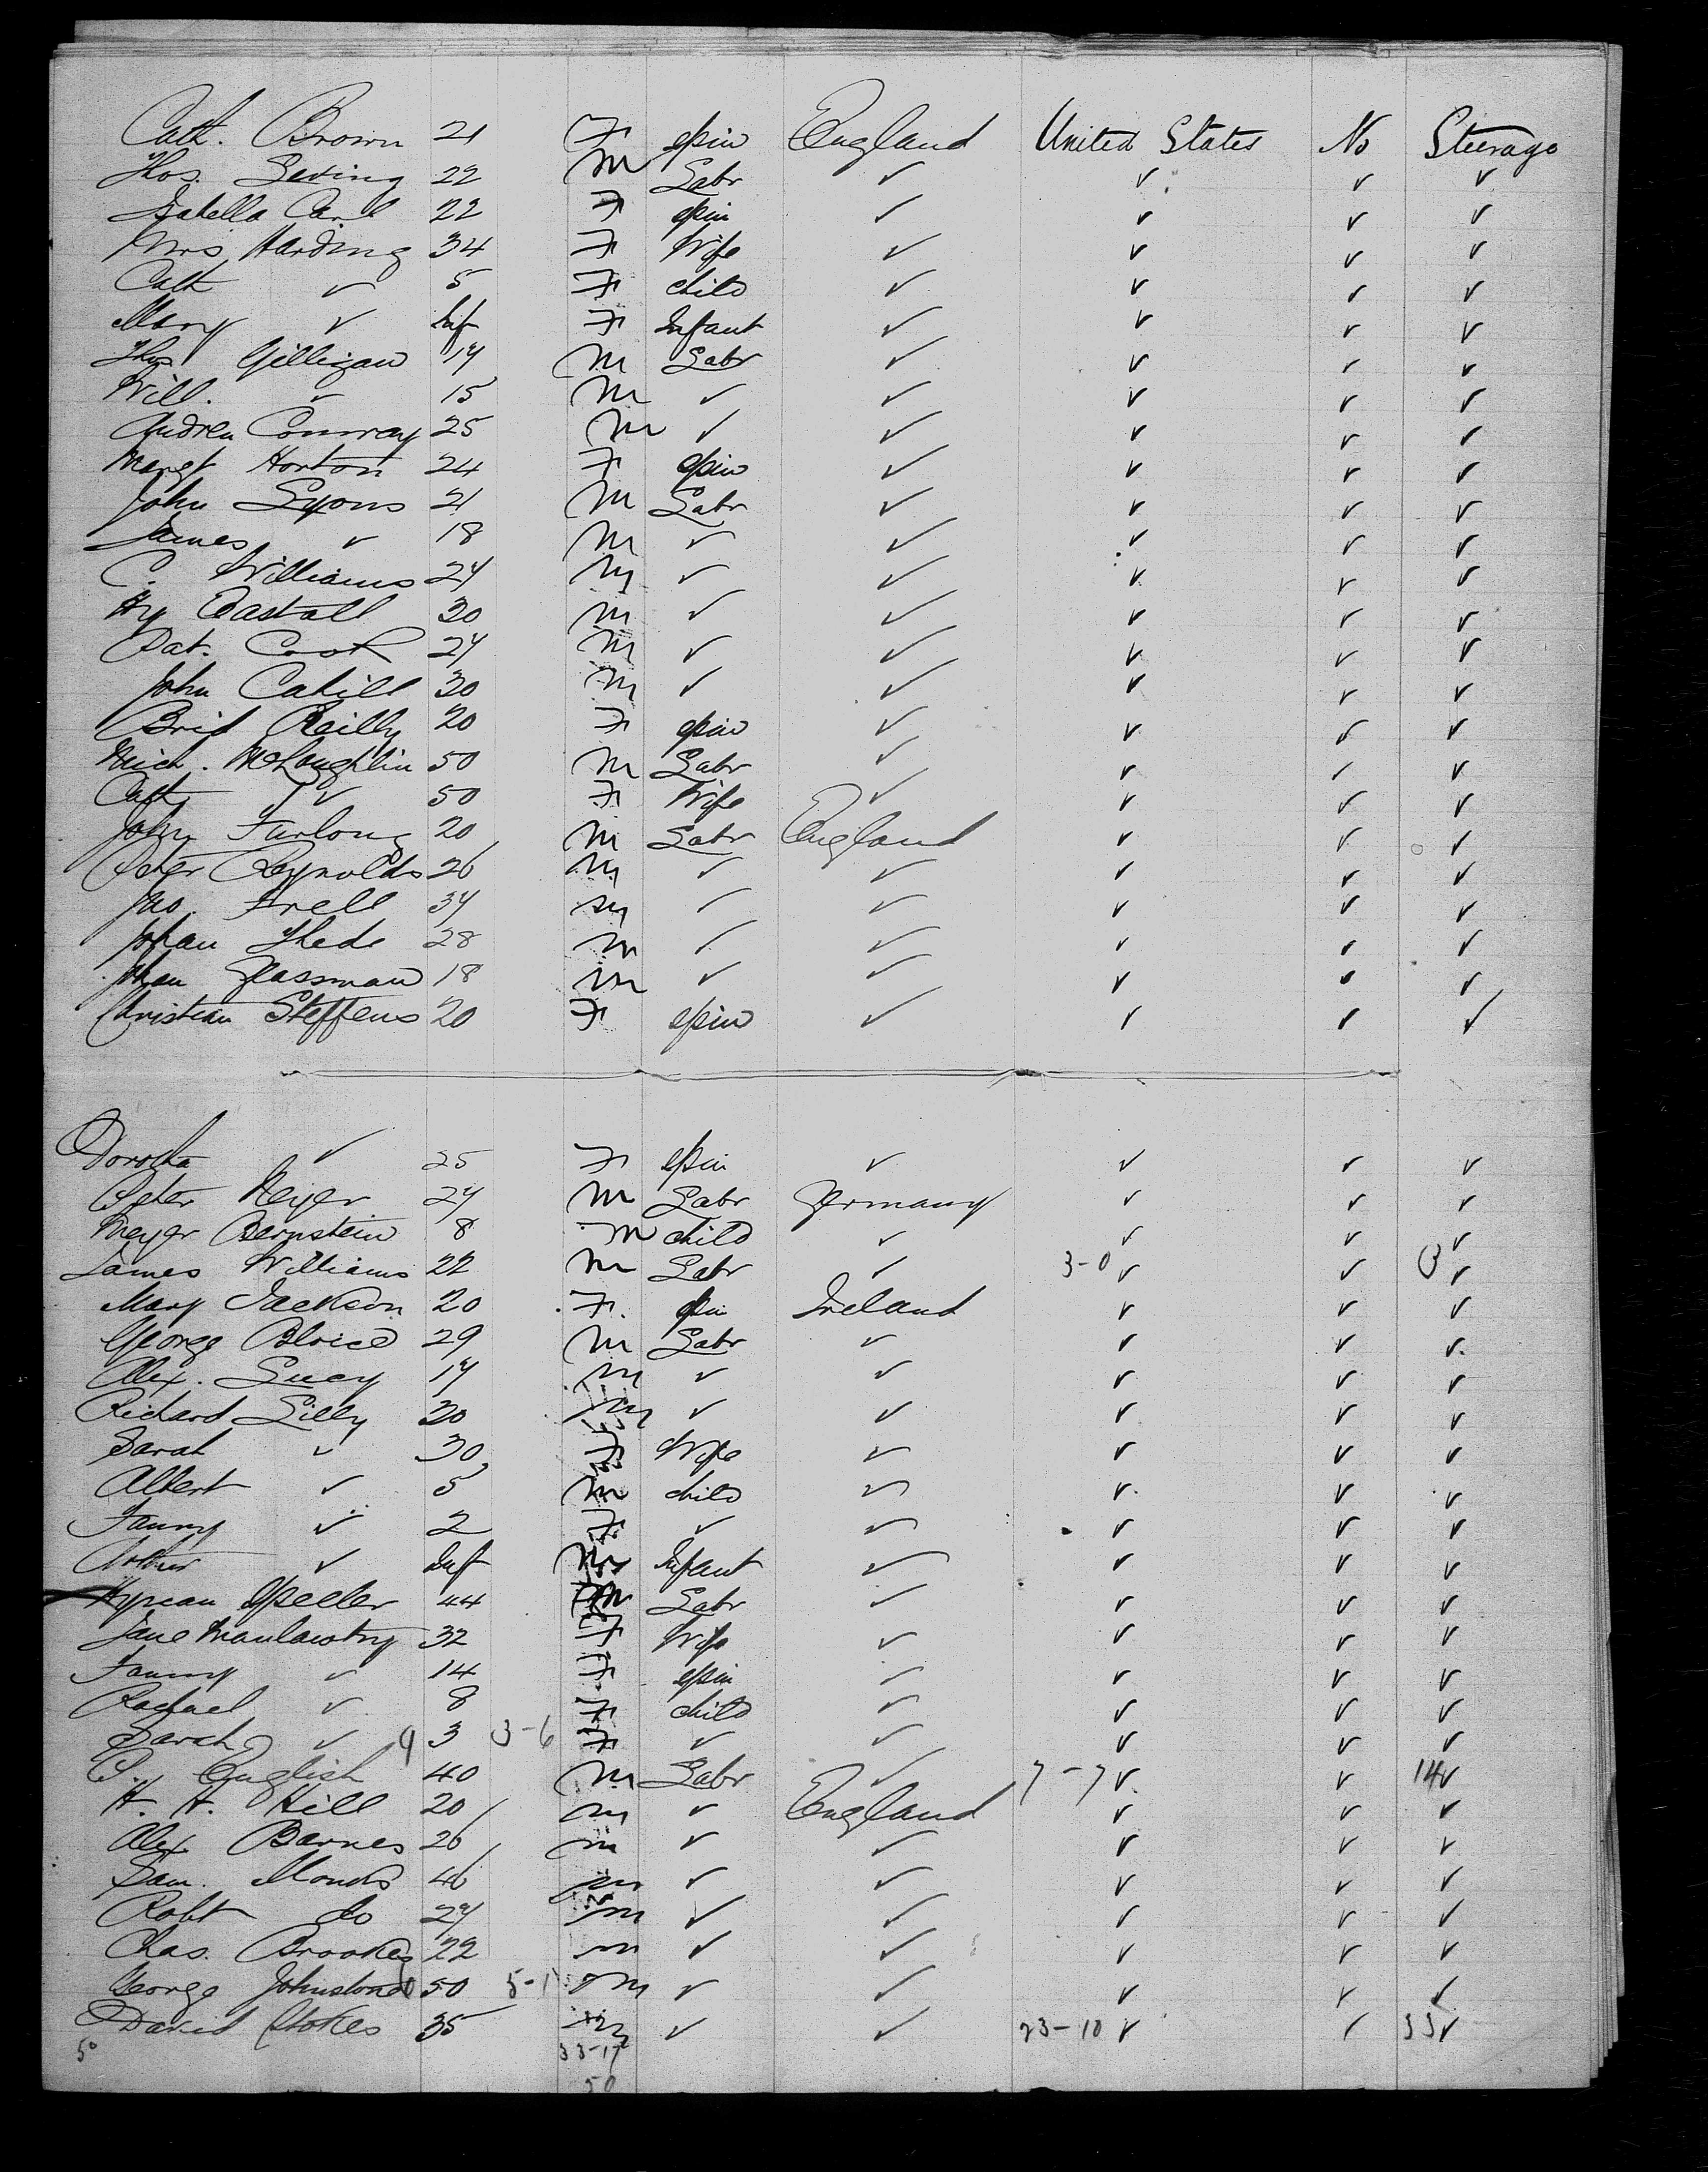 Cath. Brown 21 F spin England United States No Steerage
Thos. 22 M Labr ✓ ✓ ✓ ✓
Isabella 22 F spin ✓ ✓ ✓ ✓
Mrs Harding 34 F Wife ✓ ✓ ✓ ✓
Cath ✓ 5 F child ✓ ✓ ✓ ✓
Mary ✓ Inf F Infant ✓ ✓ ✓ ✓
Thos Gilligan 17 M Labr ✓ ✓ ✓ ✓
Will. ✓ 15 M ✓ ✓ ✓ ✓ ✓
Andrew Conway 25 M ✓ ✓ ✓ ✓ ✓
Margt Horton 24 F spin ✓ ✓ ✓ ✓
John Lyons 21 M Labr ✓ ✓ ✓ ✓
James ✓ 18 M ✓ ✓ ✓ ✓ ✓
C. Williams 27 M ✓ ✓ ✓ ✓ ✓
Hy Eastall 30 M ✓ ✓ ✓ ✓ ✓
Pat. Cook 27 M ✓ ✓ ✓ ✓ ✓
John Cahill 30 M ✓ ✓ ✓ ✓ ✓
Brid Reilly 20 F spin ✓ ✓ ✓ ✓
Mich. McLoughlin 50 M Labr ✓ ✓ ✓ ✓
Cath ✓ 50 F Wife ✓ ✓ ✓ ✓
John Furlong 20 M Labr England ✓ ✓ ✓
Peter Reynolds 26 M ✓ ✓ ✓ ✓ ✓
Jno. Frell 37 M ✓ ✓ ✓ ✓ ✓
Johan Thede 28 M ✓ ✓ ✓ ✓ ✓
Johan Glassman 18 M ✓ ✓ ✓ ✓ ✓
Christian Steffens 20 F spin ✓ ✓ ✓ ✓
Dorotha ✓ 25 F spin ✓ ✓ ✓ ✓
Peter Meyer 27 M Labr Germany ✓ ✓ ✓
Meyer Bernstein 8 M child ✓ ✓ ✓ ✓
James Williams 22 M Labr ✓ 3-0 ✓ ✓ 3 ✓
Mary Jackson 20 F. spin Ireland ✓ ✓ ✓
George 29 M Labr ✓ ✓ ✓ ✓
Alex. Lucy 17 M ✓ ✓ ✓ ✓ ✓
Richard Lilly 30 M ✓ ✓ ✓ ✓ ✓
Sarah ✓ 30 F Wife ✓ ✓ ✓ ✓
Albert ✓ 5 M child ✓ ✓ ✓ ✓
Fanny ✓ 2 F ✓ ✓ ✓ ✓ ✓
Arthur ✓ Inf M Infant ✓ ✓ ✓ ✓
Hyman Speller 44 M Labr ✓ ✓ ✓ ✓
Jane 32 F Wife ✓ ✓ ✓ ✓
Fanny ✓ 14 F spin ✓ ✓ ✓ ✓
Rachael ✓ 8 F child ✓ ✓ ✓ ✓
Sarah ✓ 9 3 3-6 F ✓ ✓ ✓ ✓ ✓
English 40 M Labr ✓ 7-7 ✓ ✓ 14 ✓
H. H. Hill 20 M ✓ England ✓ ✓ ✓
Alex Barnes 26 M ✓ ✓ ✓ ✓ ✓
Sam. Monks 46 M ✓ ✓ ✓ ✓ ✓
Robt do 27 M ✓ ✓ ✓ ✓ ✓
Chas. Brookes 22 M ✓ ✓ ✓ ✓ ✓
George Johnstone 50 5-1 M ✓ ✓ ✓ ✓ ✓
David Stokes 35 M ✓ ✓ 23-10 ✓ ✓ 33 ✓
50 33-17
50